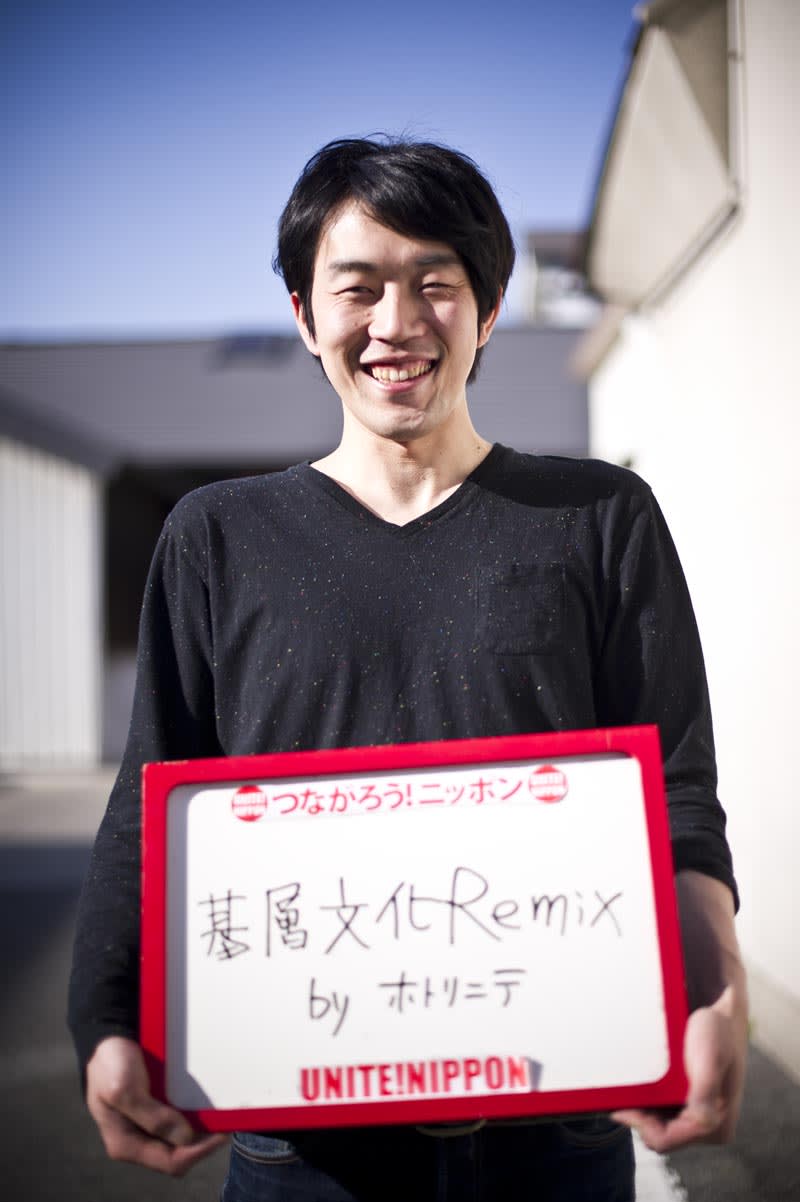 UNITE! NIPPON つながろう!ニッポン UNITE! NIPPON
基層文化Remix
by ホトリニテ
UNITE!NIPPON